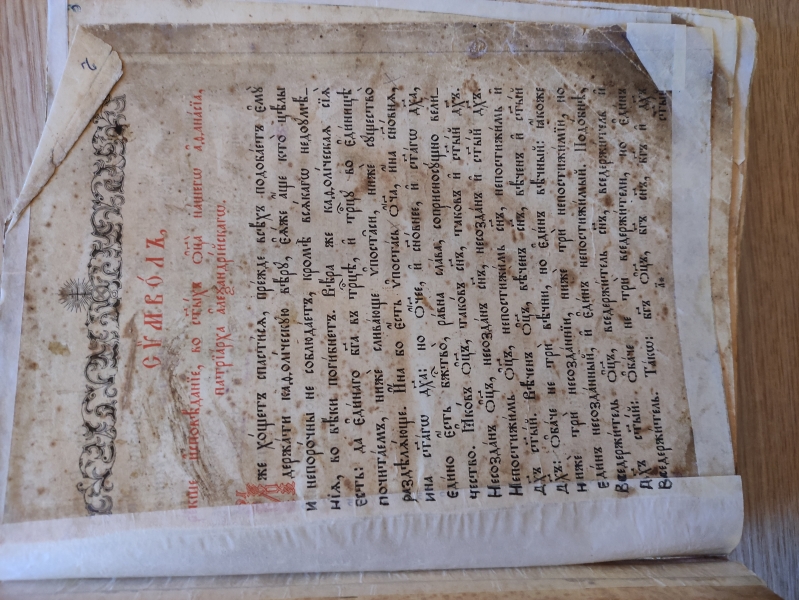 СѴМВО́ЛЪ,
исповѣ́данїе, во ст҃ы́хъ ѻ҆ц҃а̀ на́шегѡ а҆ѳана́сїа,
патрїа́рха а҆леѯандрі́йскагѡ.
И҆́же хо́щетъ сп҃сти́сѧ, пре́жде всѣ́хъ подоба́етъ є҆мꙋ̀
держа́ти каѳолі́ческꙋю вѣ́рꙋ, є҆ѧ́же а҆́ще кто̀ цѣ́лы
и҆ непоро́чны не соблюда́етъ, кромѣ̀ всѧ́кагѡ недоꙋмѣ́-
нїѧ, во вѣ́ки поги́бнетъ. Вѣ́ра же каѳолі́ческаѧ сїѧ̀
є҆́сть: да є҆ди́наго бг҃а въ трⷪ҇цѣ, и҆ трⷪ҇цꙋ во є҆ди́ницѣ
почита́емъ, нижѐ слива́юще ѵ҆поста́си, нижѐ сꙋщество̀
раздѣлѧ́юще. И҆́на бо є҆́сть ѵ҆поста́сь ѻ҆́ч҃а, и҆́на сн҃о́вна,
и҆́на ст҃а́гѡ дх҃а: но ѻ҆́ч҃ее, и҆ сн҃о́внее, и҆ ст҃а́гѡ дх҃а,
є҆ди́но є҆́сть бж҃ество̀, ра́вна сла́ва, соприсносꙋ́щно вели́-
чество. Ꙗ҆ко́въ ѻ҆ц҃ъ, такоⷡ҇ и҆ сн҃ъ, тако́въ и҆ ст҃ы́й дх҃ъ.
Несозда́нъ ѻ҆ц҃ъ, несозда́нъ сн҃ъ, несозда́нъ и҆ ст҃ы́й дх҃ъ.
Непостижи́мь ѻ҆ц҃ъ, непостижи́мь сн҃ъ, непостижи́мь и҆
дх҃ъ ст҃ы́й. Вѣ́ченъ ѻ҆ц҃ъ, вѣ́ченъ сн҃ъ, вѣ́ченъ и҆ ст҃ы́й
дх҃ъ: ѻ҆ба́че не трѝ вѣ́чнїи, но є҆ди́нъ вѣ́чный: ꙗ҆́коже
нижѐ трѝ несозда́ннїи, нижѐ трѝ непостижи́мїи, но
є҆ди́нъ несозда́нный, и҆ є҆ди́нъ непостижи́мый. Подо́бнѣ,
Вседержи́тель ѻ҆ц҃ъ, вседержи́тель сн҃ъ, вседержи́тель и҆
дх҃ъ ст҃ы́й: ѻ҆ба́че не трѝ вседержи́тели, но є҆ди́нъ
Вседержи́тель. Та́кѡ: бг҃ъ ѻ҆ц҃ъ, бг҃ъ сн҃ъ, бг҃ъ и҆ дх҃ъ
ст҃ы́й
2